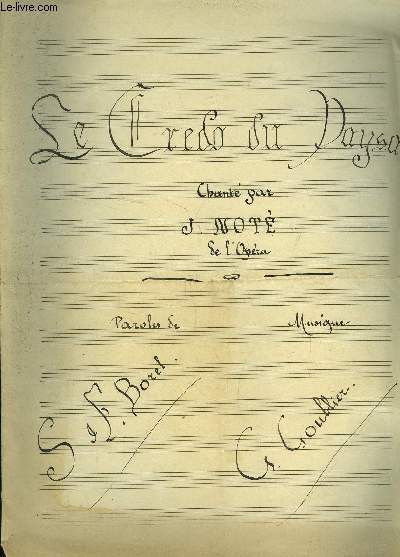 Le-livre.com
Le Credo du Paysa
Chanté par
J. NOTÉ
de l'Opéra
Paroles de
Musique
S & F. Borel.
G. Goublier.